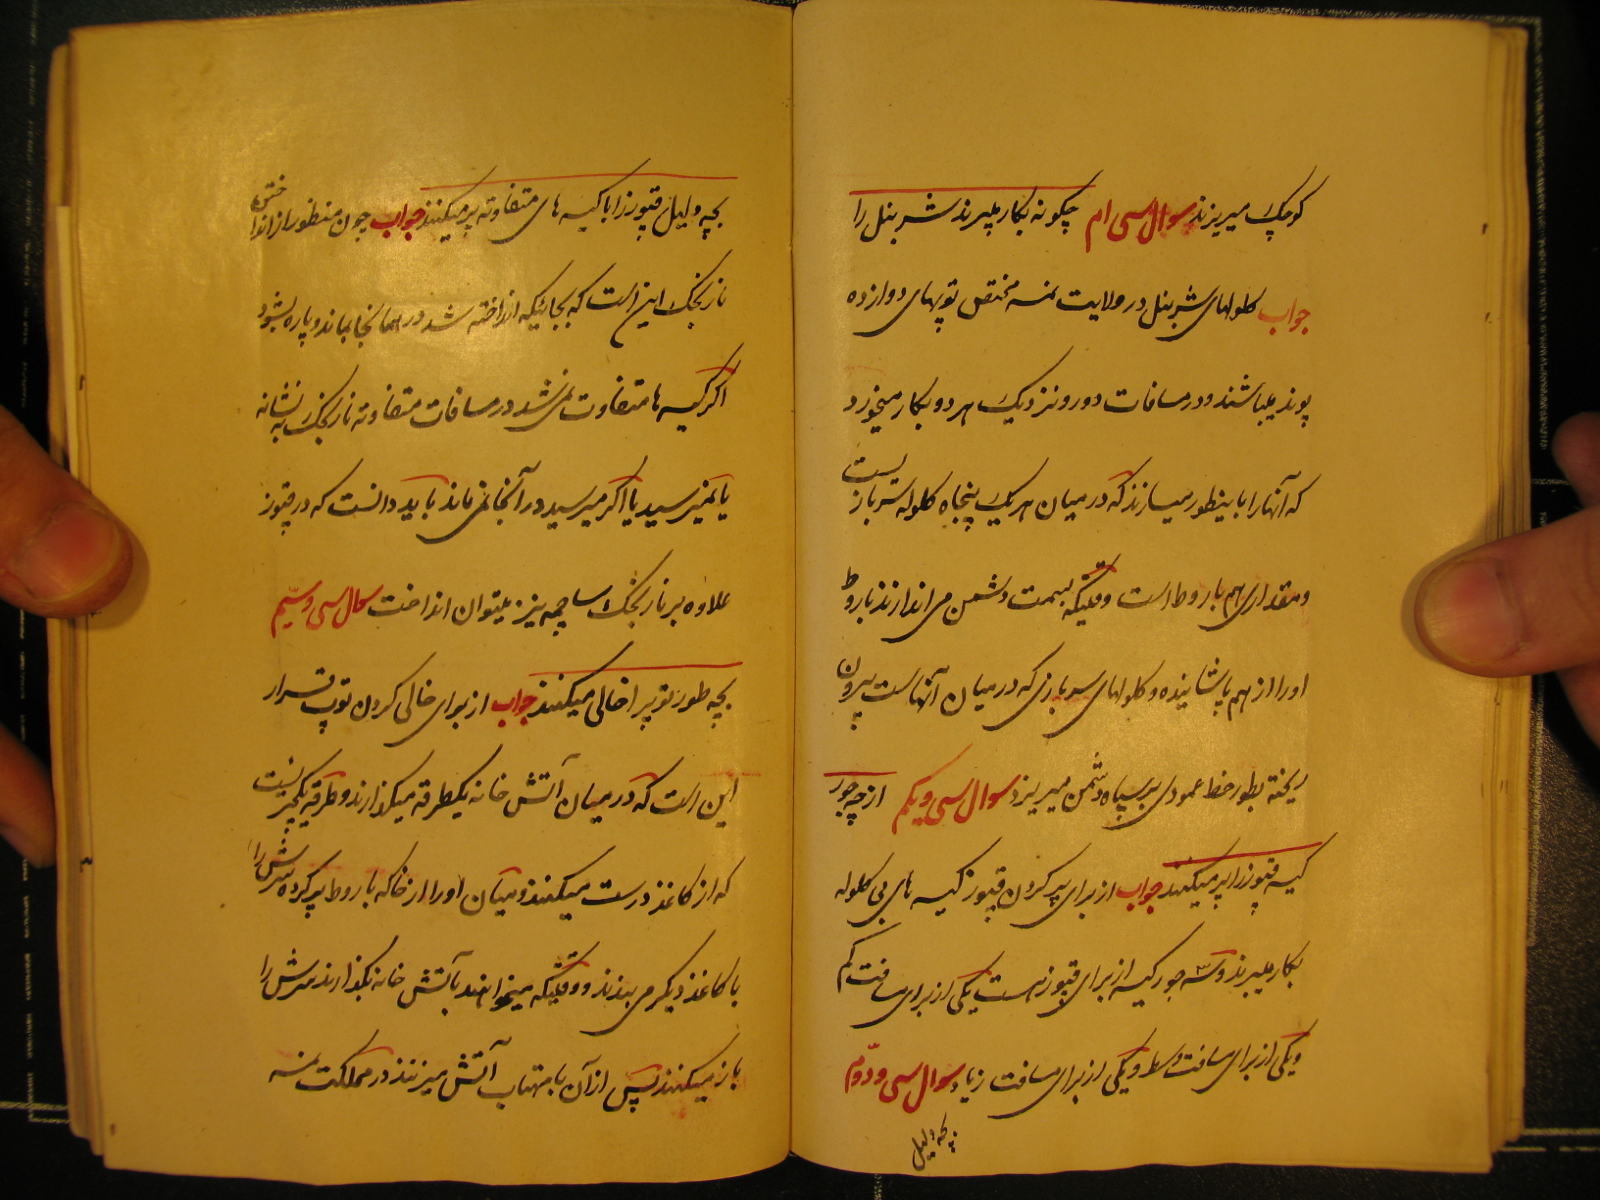 کوچک میریزند سوال سی ام چگونه بکار میبرند شربنل را
جواب کلولهای شربنل در ولایت نمسه مختص توپهای دوازده
پوند میباشند و در مسافات دور و نزدیک هر دو بکار میخورد
که آنها را باینطور میسازند که در میان هر یک پنجاه کلوله سربازیست
و مقداری هم باروط است وقتیکه بسمت دشمن می اندازند باروط
او را از هم پاشانیده و کلولهای سربازی که در میان آنهاست بیرون
ریخته بطور خط عمودی بر سپاه دشمن میریزد سوال سی و یکم از چه جور
کیسه قپوز را پر میکنند جواب از برای پر کردن قپوز کیسه های بی کلوله
بکار میبرند و سه جور کیسه از برای قپوز هست یکی از برای مسافت کم
و یکی از برای مسافت وسط و یکی از برای مسافت زیاد سوال سی و دوّم
بچه دلیل
بچه دلیل قپوز را با کیسه های متفاوته پر میکنند جواب چون منظور از انداختن
نارنجک این است که بجائیکه انداخته شد در همانجا بماند و پاره بشود
اکر کیسه ها متفاوت نمی شد در مسافات متفاوته نارنجک به نشانه
یا نمیرسید یا اکر میرسید در آنجا نمی ماند باید دانست که در قپوز
علاوه بر نارنجک ساچمه نیز میتوان انداخت سوال سی و سیّم
بچه طور توپ را خالی میکنند جواب از برای خالی کردن توپ قرار
این است که در میان آتش خانه یکطرقه میکذارند و طرقه یکچیزیست
که از کاغذ درست میکنند و میان او را از خاکه باروط پر کرده سرش را
با کاغذ دیکر می بندند و وقتیکه میخواهند بآتش خانه بکذارند سرش را
باز میکنند پس از آن با مهتاب آتش میزنند در مملکت نمسه